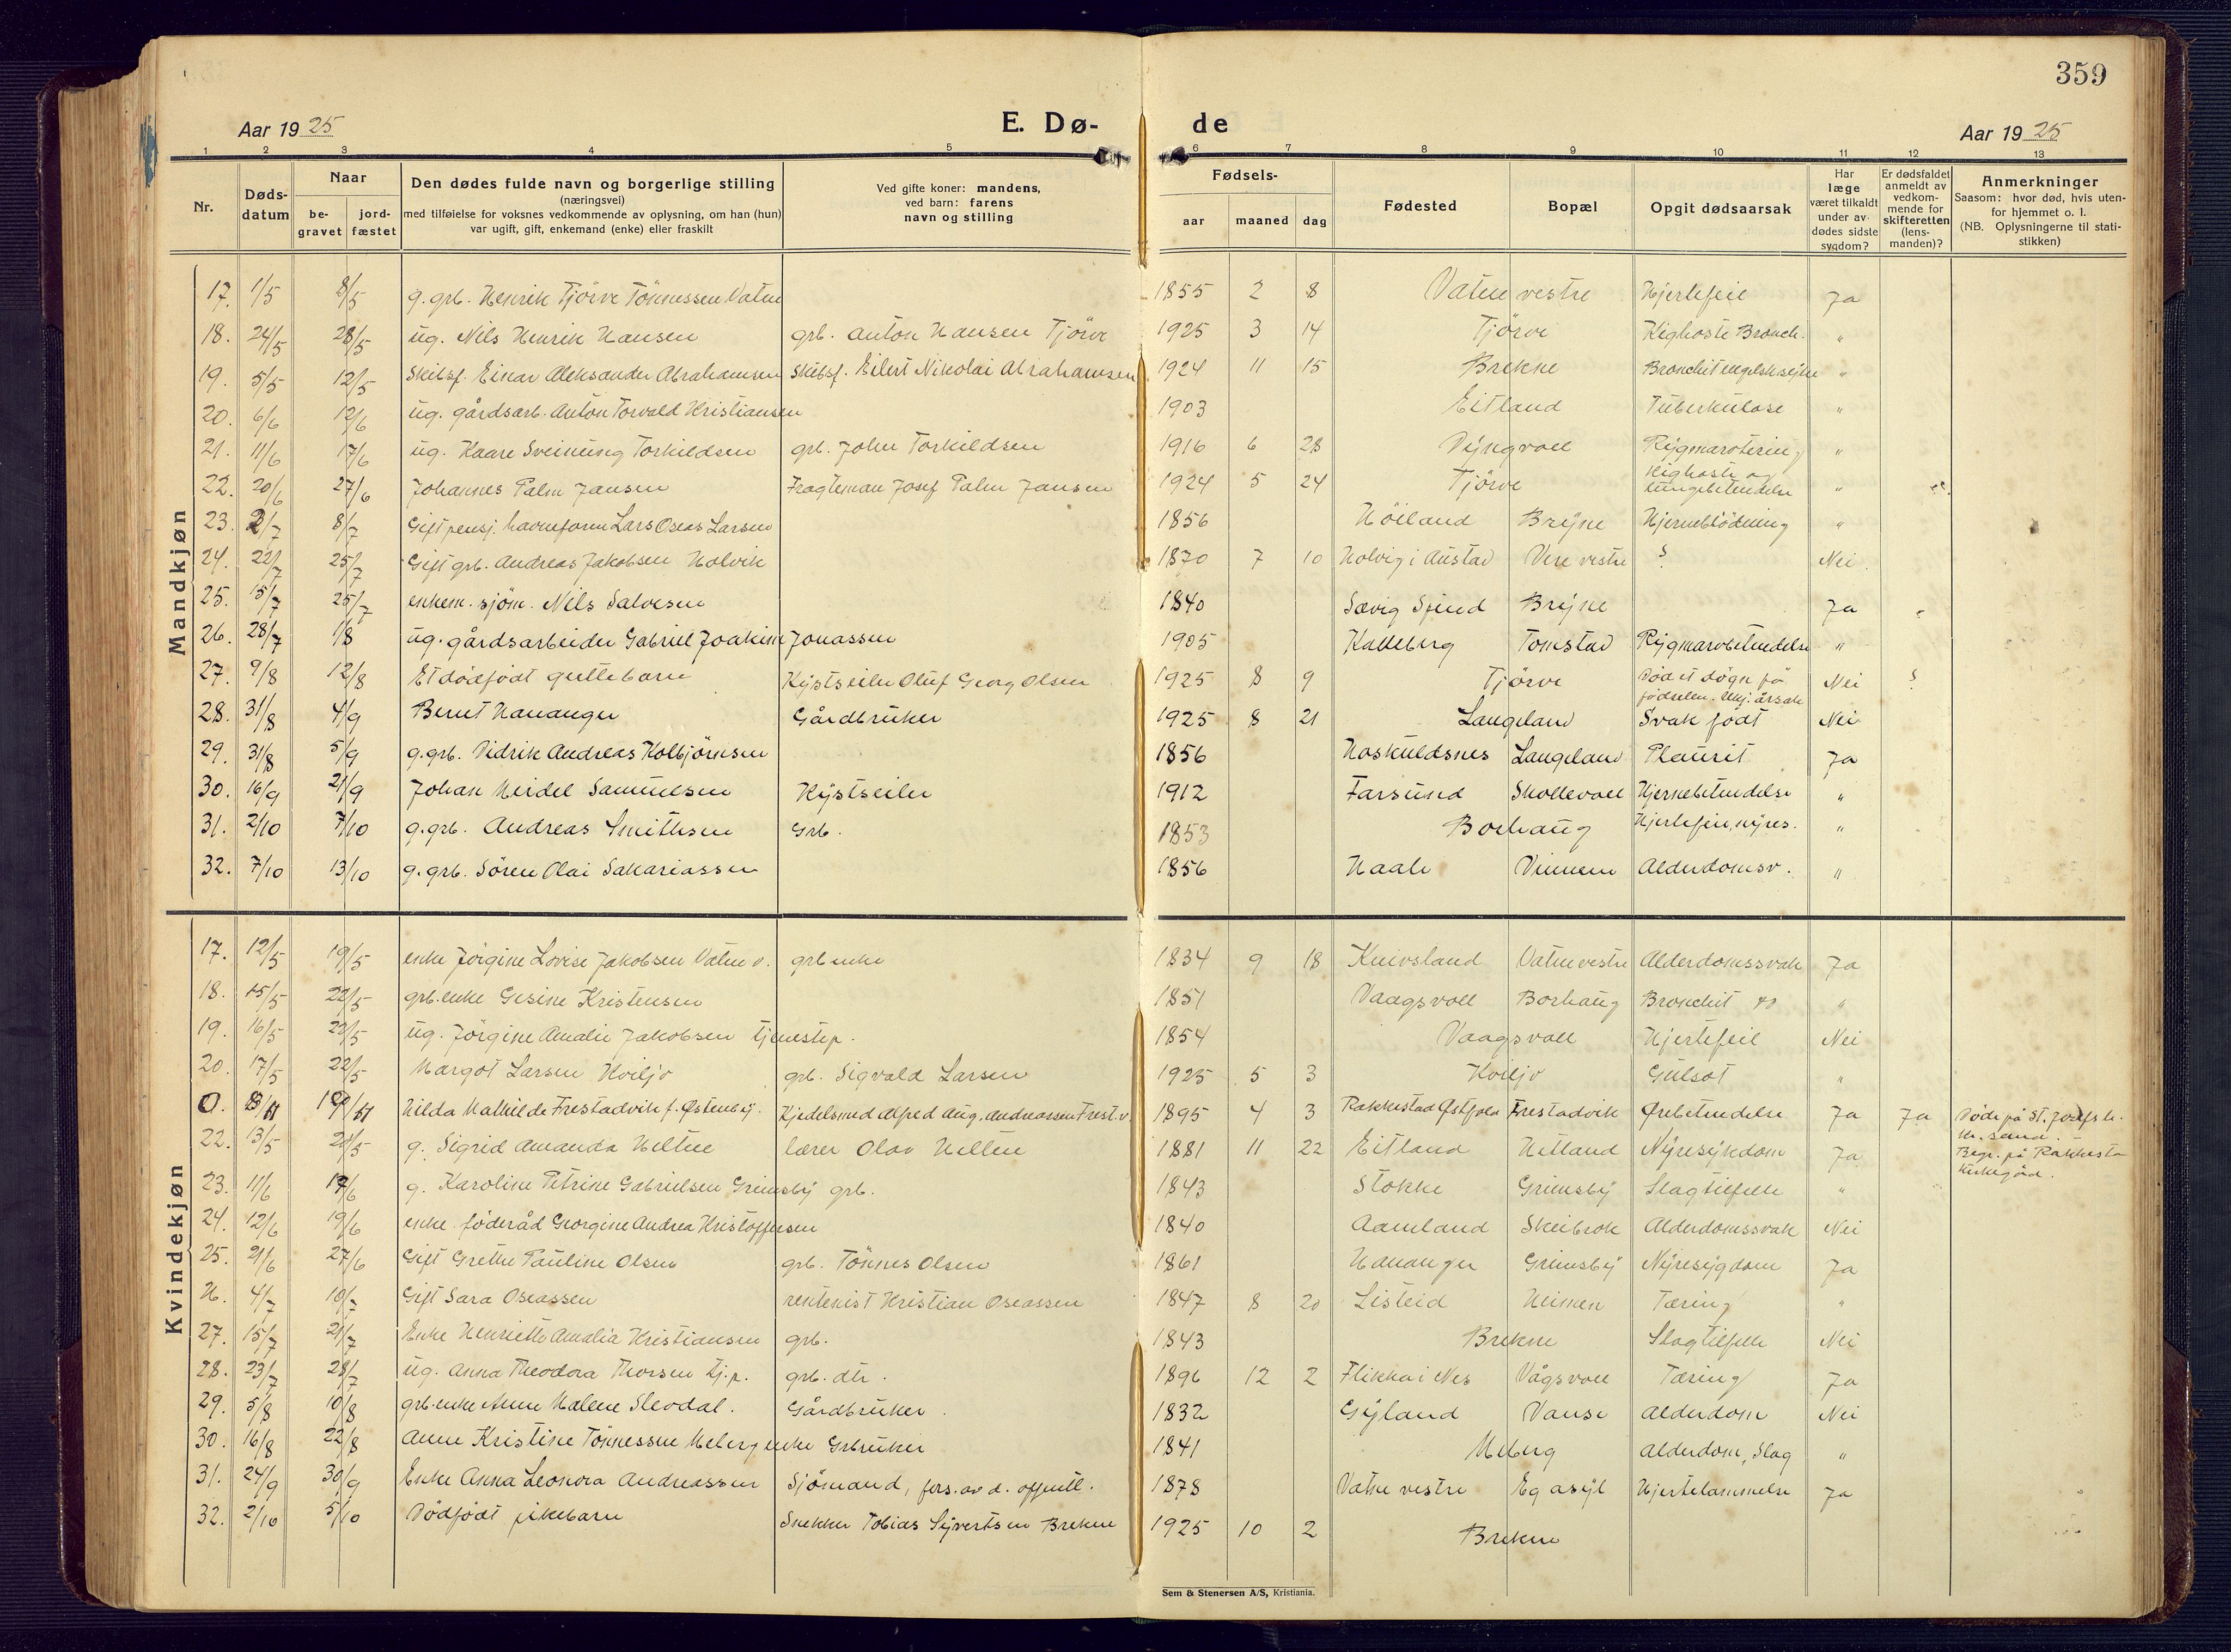 359
Aar 1925 E. Dø- de Aar 1925
1 2 3 4 5 6 7 8 9 10 11 12 13
Nr.
Døds-
datum
Naar
be-
gravet
jord-
fæstet
Den dødes fulde navn og borgerlige stilling
(næringsvei)
med tilføielse for voksnes vedkommende av oplysning, om han (hun)
var ugift, gift, enkemand (enke) eller fraskilt
Ved gifte koner: mandens,
ved barn: farens
navn og stilling
Fødsels-
aar maaned dag
Fødested
Bopæl
Opgit dødsaarsak
Har
læge
været tilkaldt
under av-
dødes sidste
sygdom?
Er dødsfaldet
anmeldt av
vedkom-
mende for
skifteretten
(lens-
manden)?
Anmerkninger
Saasom: hvor død, hvis uten-
for hjemmet o. l.
(NB. Oplysningerne til stati-
stikken)
Mandkjøn
17. 1/5 8/5 g. grb. Henrik Tjörve Tönnessen Vatne 1855 2 8 Vatne vestre Hjertefeil Ja
18. 24/5 28/5 ug. Nils Henrik Hansen grb. Anton Hansen Tjörve 1925 3 14 Tjörve Kighoste Bronch. "
19. 5/5 12/5 Skibsf. Einar Aleksander Abrahamsen Skibsf. Eilert Nikolai Abrahamsen 1924 11 15 Brekne Bronchit engelsksyke "
20. 6/6 12/6 ug. gårdsarb. Anton Torvald Kristiansen 1903 Eitland Tuberkulose "
21. 11/6 17/6 ug. Kaare Sveinung Torkildsen grb. John Torkildsen 1916 6 28 Vyngvoll Rygmarvtering "
22. 20/6 27/6 Johannes Palm Jansen Fragteman Josef Palm Jansen 1924 5 24 Tjörve Kighoste og lungebetendelse "
23. 2/7 8/7 Gift pensj. havneform Lars Oseas Larsen 1856 Höiland Bryne Hjerneblödning "
24. 22/7 25/7 Gift grb. Andreas Jakobsen Holvik 1870 7 10 Holvig i Austad Vere vestre ? Nei
25. 15/7 25/7 enkem. sjöm. Nils Salvesen 1840 Sævig Spind Bryne Ja
26. 28/7 1/8 ug. gårdsarbeider Gabriel Joakim Jonassen 1905 Kalleberg Tomstad Rygmarvbetendelse "
27. 9/8 12/8 Et dödfödt guttebarn Kystseiler Oluf Georg Olsen 1925 8 9 Tjörve Död et dögn fö födselen. Ukj. årsak Nei ?
28. 31/8 4/9 Bernt Hananger Gårdbruker 1925 8 21 Langeland Svak födt Nei
29. 31/8 5/9 g. grb. Didrik Andreas Kolbjörnsen 1856 Haskuldsnes Langeland Plaurit Ja
30. 16/9 21/9 Johan Meidel Samuelsen Kystseiler 1912 Farsund Skollevoll Hjernebetendelse "
31. 2/10 7/10 g. grb. Andreas Smithsen Grb. 1853 Borhaug Hjertefeil, nyres. "
32. 7/10 13/10 g. grb. Sören Olai Sakariassen 1856 Haale Vinnem Alderdomsv. "
Kvindekjøn
17. 12/5 19/5 enke Jörgine Lovise Jakobsen Vatne v. grb enke 1834 9 18 Kneivsland Vatne vestre Alderdomssvak Ja
18. 15/5 22/5 grb. enke Gesine Kristensen 1851 Vaagsvoll Borhaug Bronchit "
19. 16/5 22/5 ug. Jörgine Amalie Jakobsen tjenestep. 1854 Vaagsvoll Hjertefeil Nei
20. 17/5 22/5 Margot Larsen Kviljo grb. Sigvald Larsen 1925 5 3 Kviljo Gulsot "
Hilda Mathilde Frestadvik f. Østenby. Kjedelsmed Alfred Aug. Andreassen Frest.v. 1895 4 3 Rakkestad Østfold Frestadvik Ørebetendelse Ja Ja Döde på St. Josefs h. Kr. sand. - Begr. på Rakkesta Kirkegård.
22. 13/5 20/5 g. Sigrid Amanda Heltne lærer Olav Heltne 1881 11 22 Eitland Hetland Nyresykdom Ja
23. 11/6 17/6 g. Karoline Petrine Gabrielsen Grimsby grb. 1843 Stokke Grimsby Slagtilfelle "
24. 12/6 19/6 enke föderåd Georgine Andrea Kristoffersen 1840 Aamland Skeibrok Alderdomssvak Nei
25. 21/6 27/6 Gift Grethe Pauline Olsen grb. Tönnes Olsen 1861 Hananger Grimsby Nyresygdom Ja
26. 4/7 10/7 Gift Sara Oseassen rentenist Kristian Oseassen 1847 8 20 Listeid Heimen Tæring "
27. 15/7 21/7 Enke Henriette Amalia Kristiansen grb. 1843 Brekne Slagtilfelle Nei
28. 23/7 28/7 ug. Anna Theodora Thorsen tj.p. grb. dtr. 1896 12 2 Flikka i Nes Vågsvoll Tæring Ja
29. 5/8 10/8 grb. enke Anne Malene Slevdal. Gårdbruker. 1832 Gyland Vanse Alderdom Nei
30. 16/8 22/8 Anne Kristine Tönnessen Meberg enke Grbruker 1841 Meberg Alderdom, Slag "
31. 24/9 30/9 Enke Anna Leonora Andreassen Sjömand, fors. av d. offentl. 1878 Vatne vestre Eg asyl Hjertelammelse Ja
32. 2/10 5/10 Dödfödt pikebarn Snekker Tobias Syvertsen Brekne 1925 10 2 Brekne
Sem & Stenersen A/S, Kristiania.